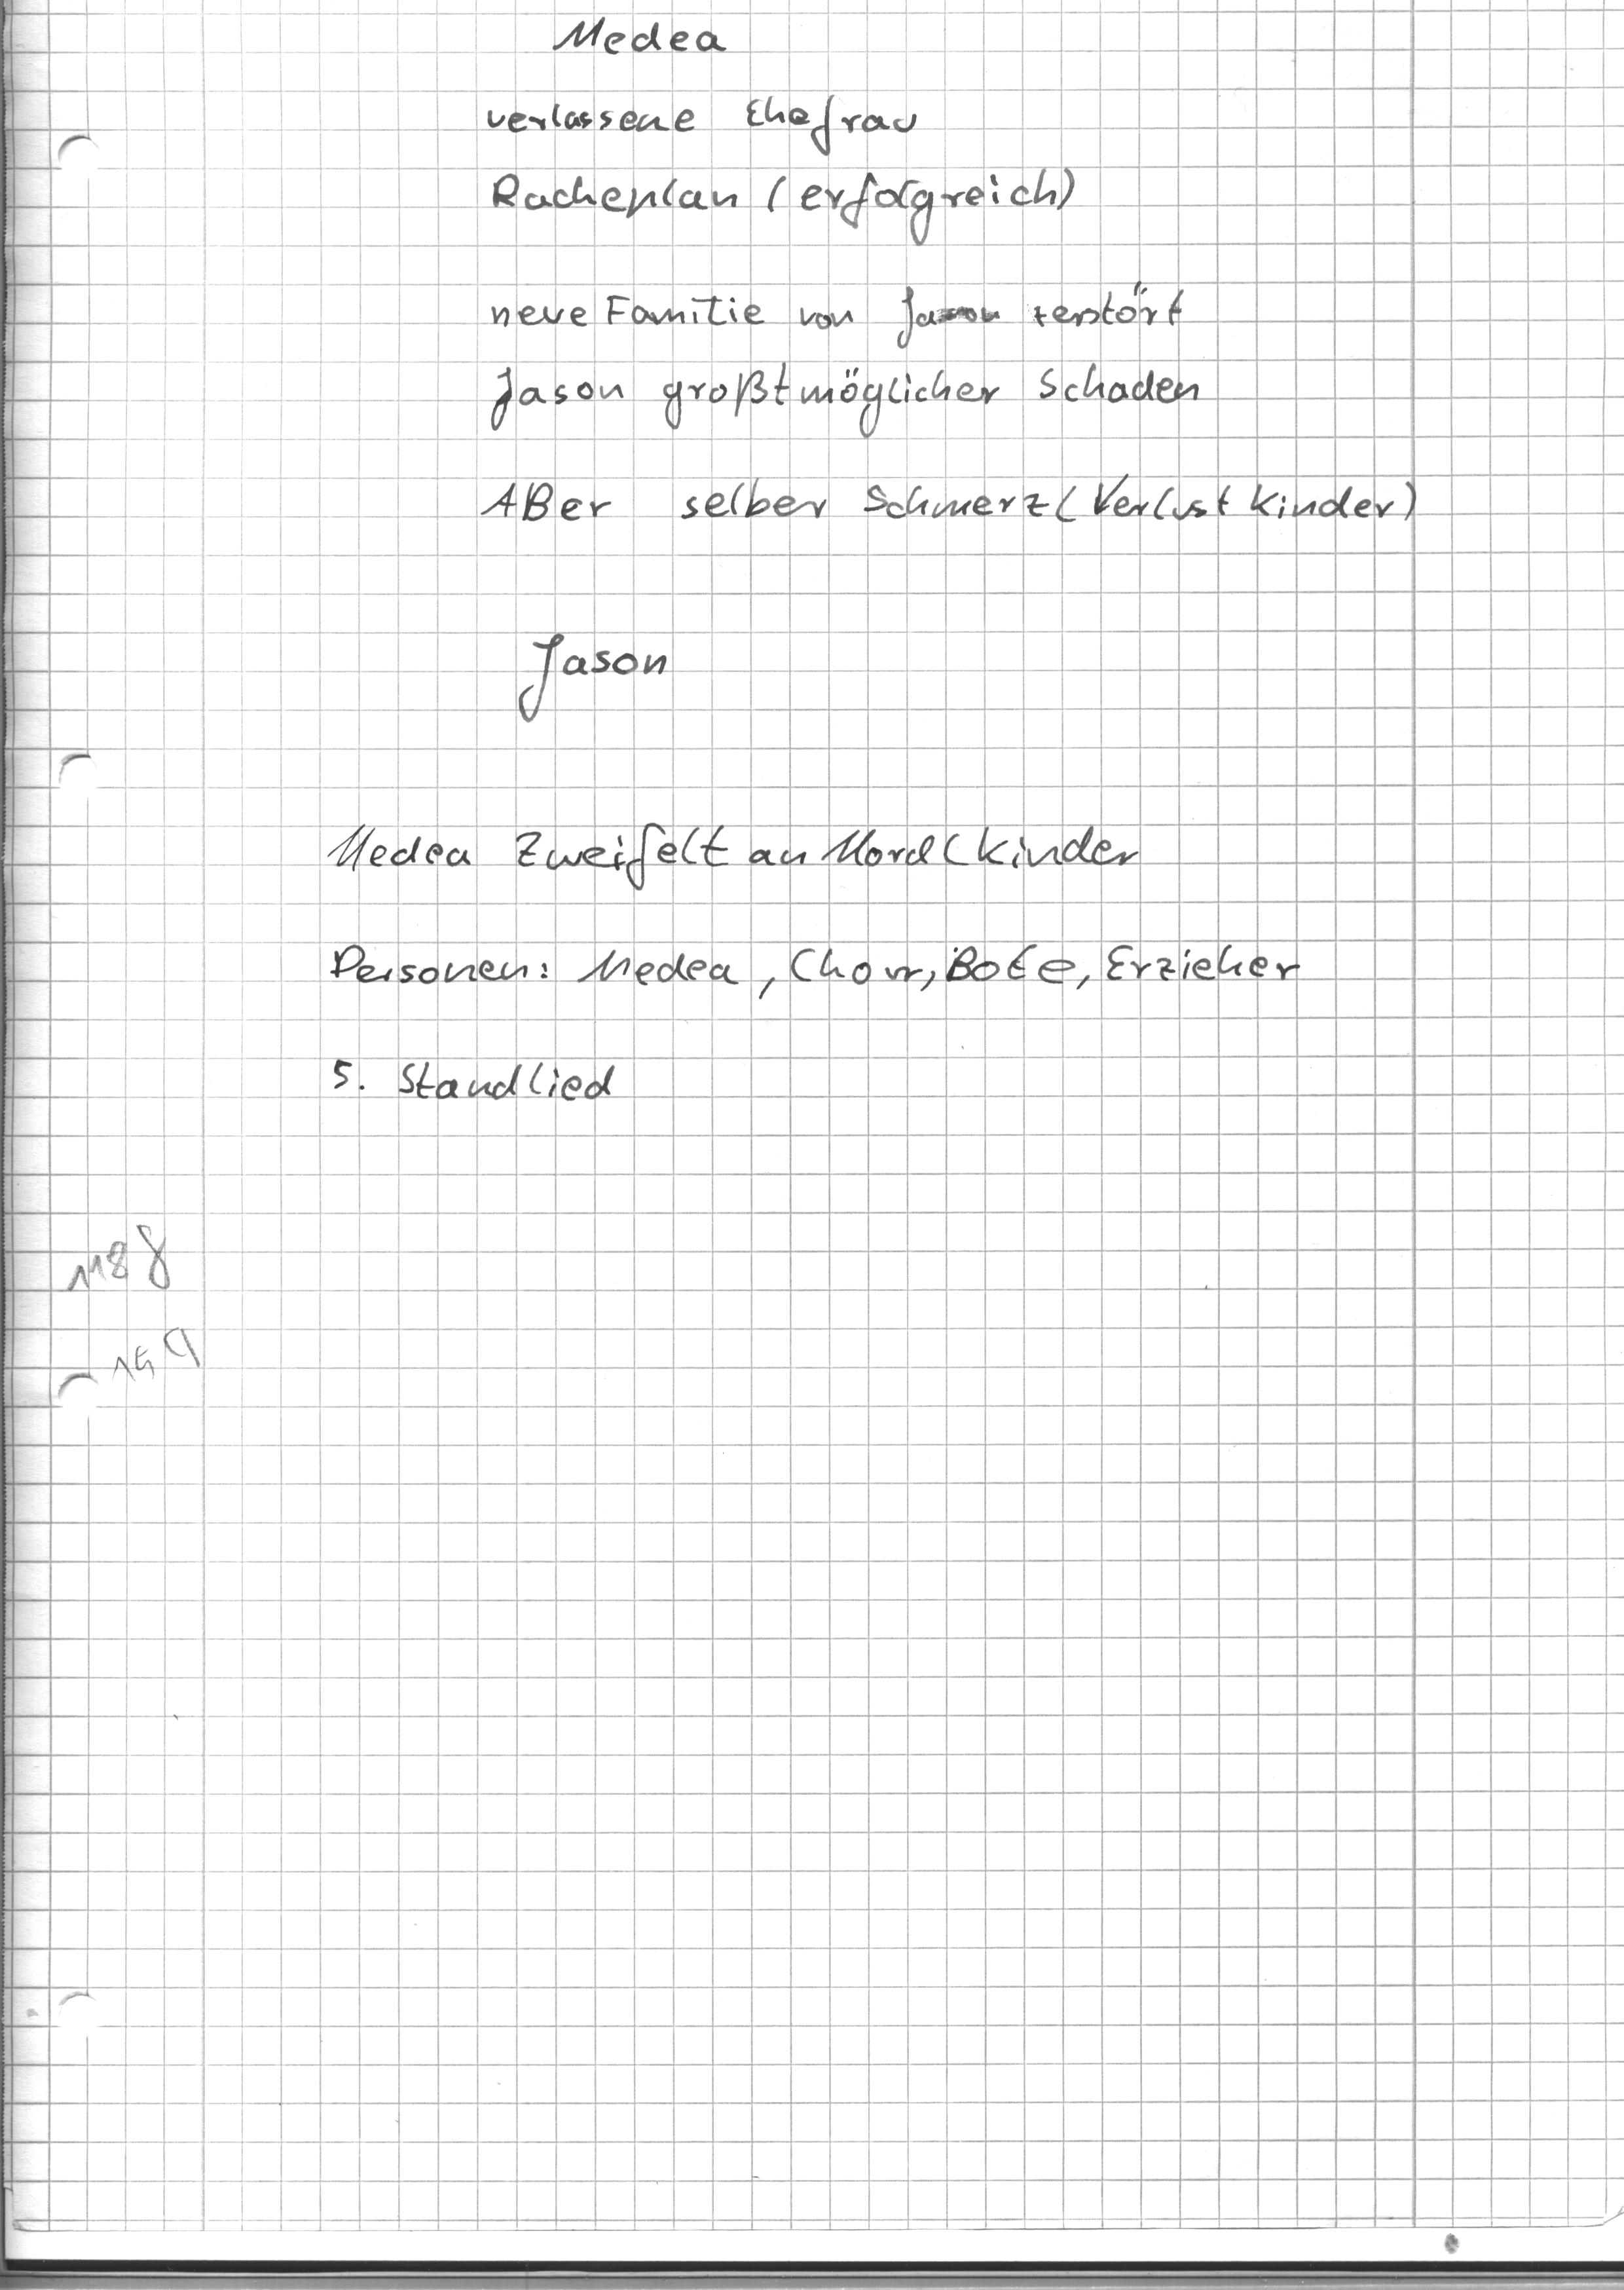 Medea
verlassene Ehefrau
Racheplan (erfolgreich)
neue Familie von Jason zerstört
Jason großtmöglicher Schaden
ABer selber Schmerz (Verlust Kinder)
Jason
Medea Zweifelt an Mord (Kinder
Personen: Medea, Chor, Bote, Erzieher
5. Standlied
118